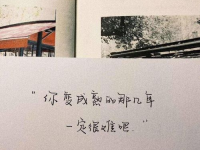 "你变成熟的那几年
一定很难吧."